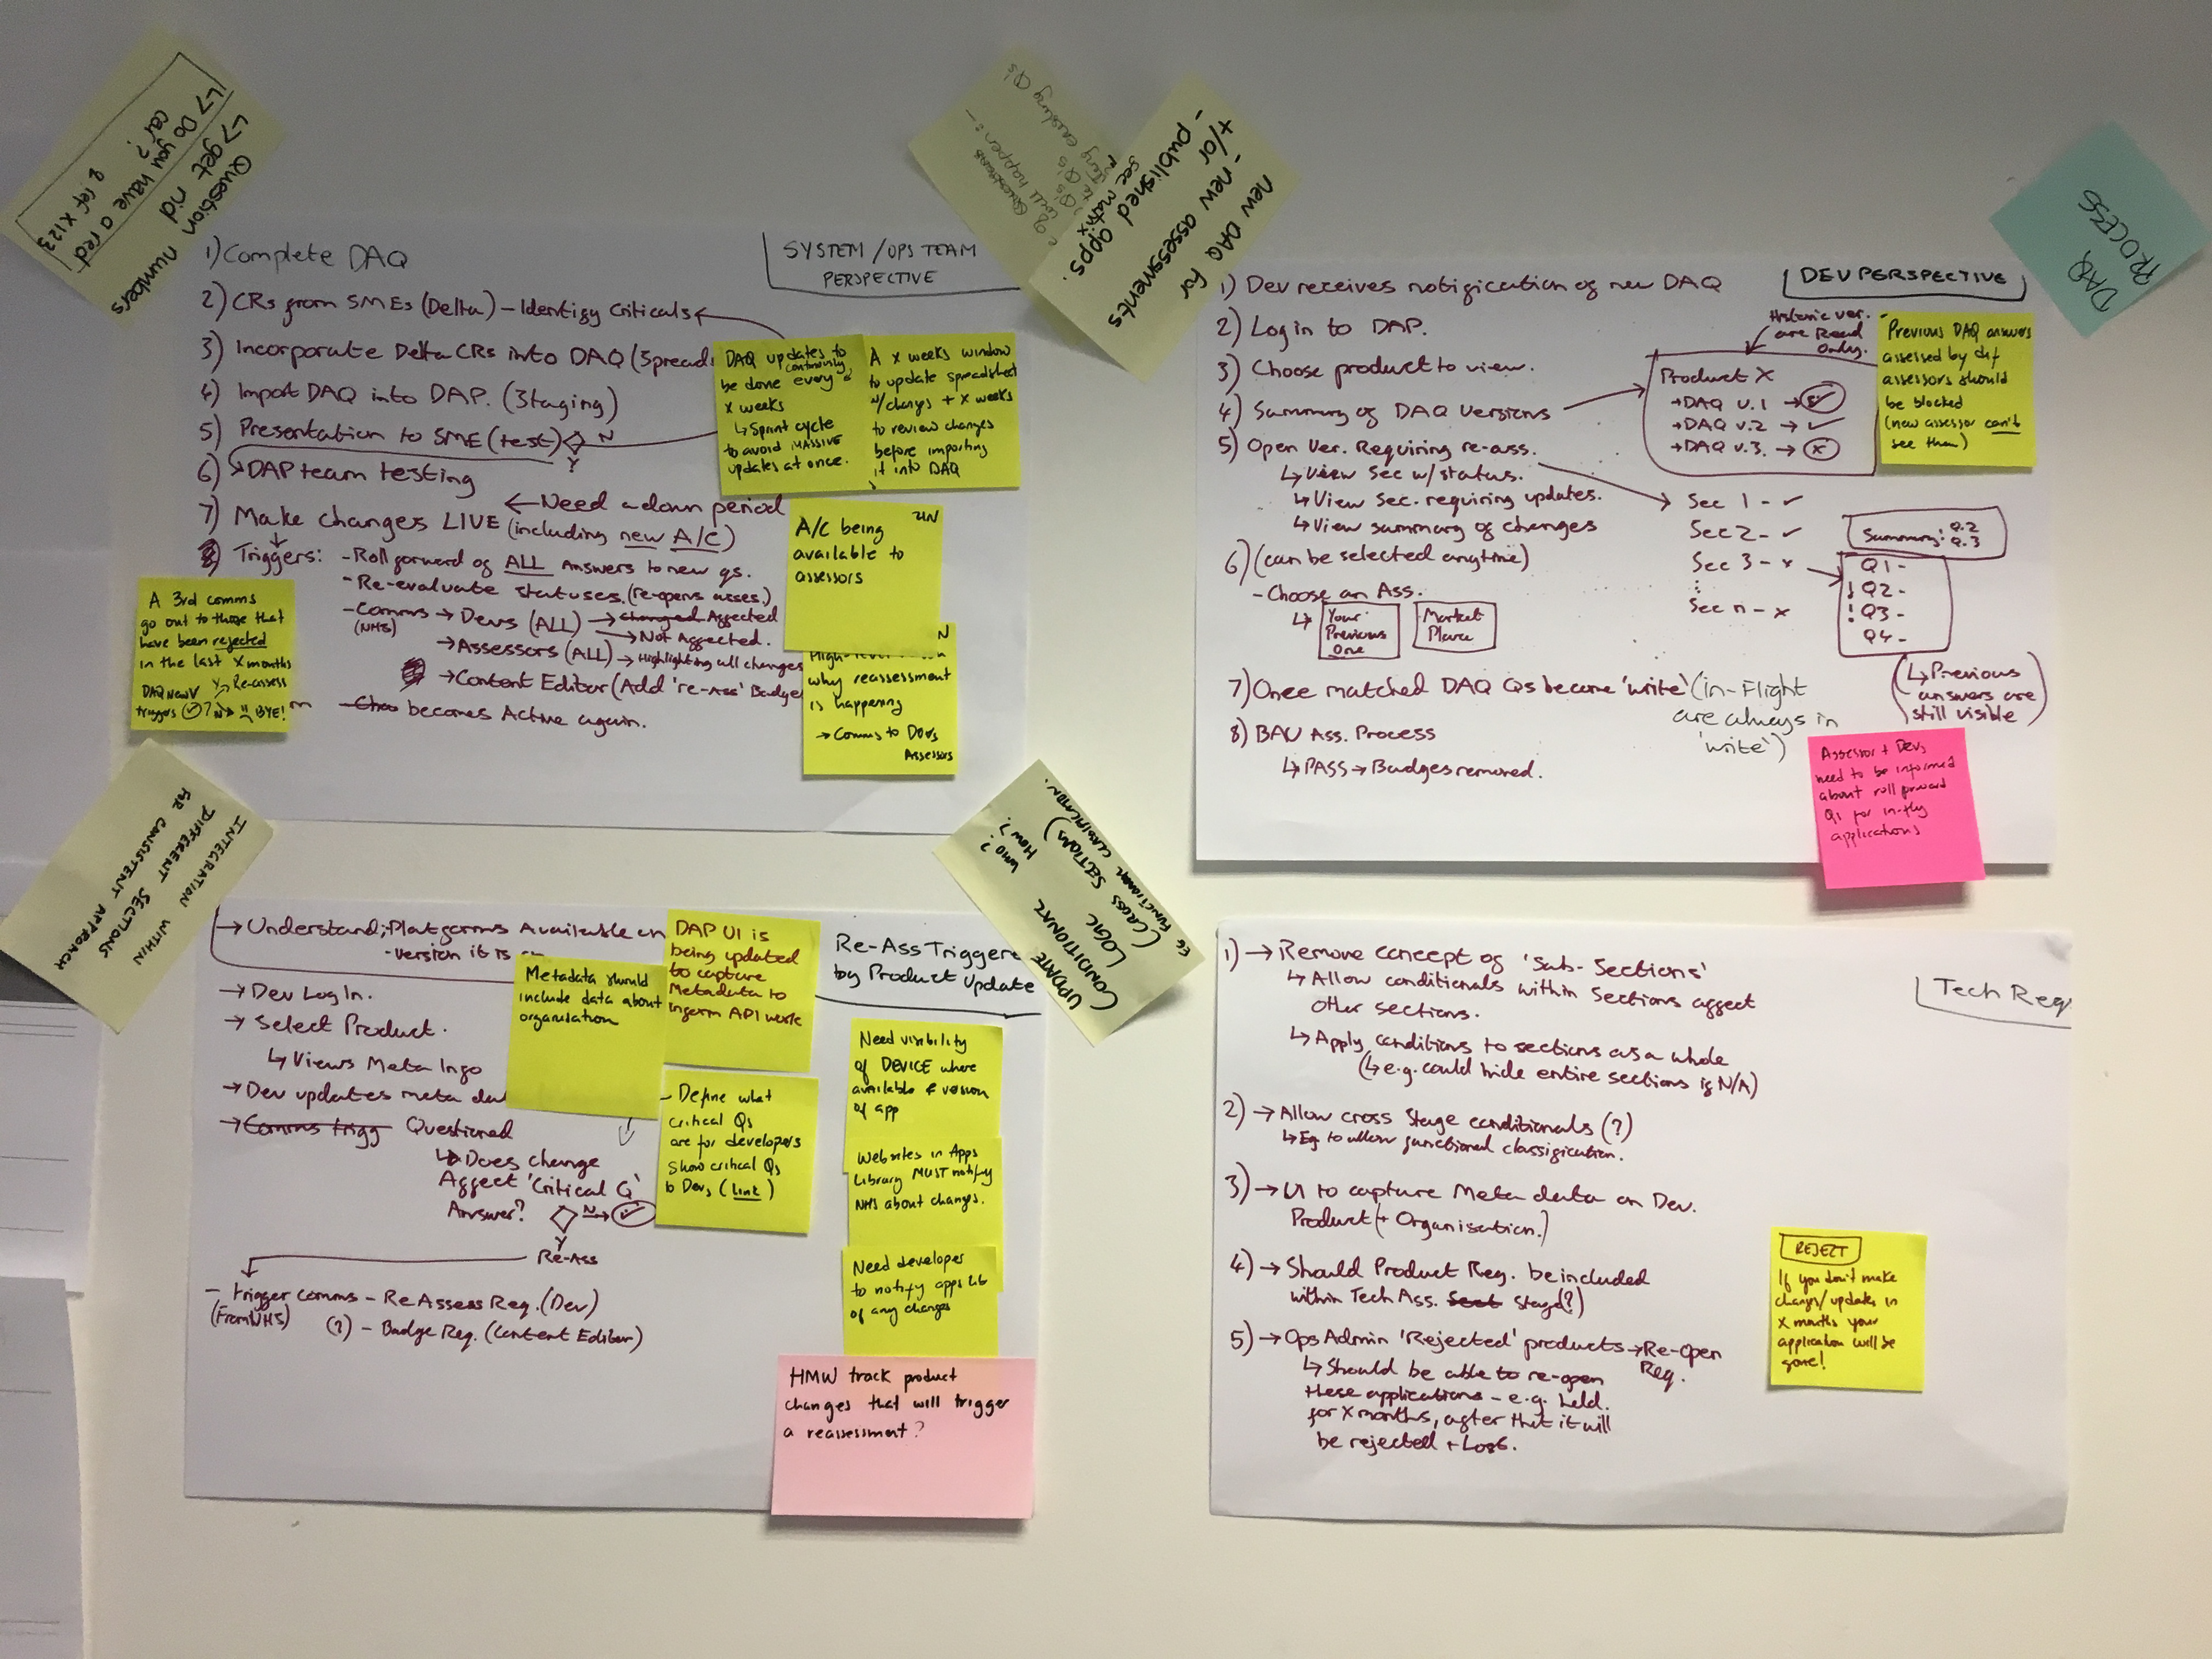 Question numbers
↳ get rid
↳ Do you have a red
car?
& ref X123
1) Complete DAQ
SYSTEM / OPS TEAM
PERSPECTIVE
2) CRs from SMEs (Delta) – Identify Criticals
3) Incorporate Delta CRs into DAQ (Spreads
4) Import DAQ into DAP. (Staging)
5) Presentation to SME (test) N
Y
6) DAP team testing
← Need a down period
7) Make changes LIVE (including new A/C)
Triggers: - Roll forward of ALL Answers to new qs.
- Re-evaluate statuses. (re-opens asses.)
- Comms → Devs (ALL) → changed Affected
(NHS)
→ Not Affected.
→ Assessors (ALL) → Highlighting all changes
→ Content Editor (Add 're-Ass' Badge
becomes Active again.
DAQ updates to
be done every
continously
x weeks
↳ Sprint cycle
to avoid MASSIVE
updates at once.
A x weeks window
to update spreadsheet
w/changs + x weeks
to review changes
before importing
it into DAQ
A/C being
available to
assessors
why reassessment
is happening
→ Comms to Devs
Assessors
A 3rd comms
go out to those that
have been rejected
in the last x months
DAQ New V Y Re-assess
triggers ✓? N BYE!
e.g.
will happen:-
new DAQ for
- new assessments
+/or
- published apps.
see matrix
DAQ
PROCESS
1) Dev receives notification of new DAQ
DEV PERSPECTIVE
2) Log in to DAP.
Historic ver.
are Read
Only.
3) Choose product to view.
4) Summary of DAQ Versions
Product X
→ DAQ v.1 → ✓
→ DAQ v.2 → ✓
→ DAQ v.3. → x
5) Open Ver. Requiring re-ass.
↳ View Sec w/status.
↳ View Sec. requiring updates.
↳ View summary of changes
Sec 1 - ✓
Sec 2 - ✓
Sec 3 - x
Sec n - x
Summary: Q.2
Q.3
Q1 -
! Q2 -
! Q3 -
Q4 -
(↳ Previous
answers are
still visible)
6) (can be selected anytime)
- Choose an Ass.
↳ Your
Previous
One
Market
Place
7) Once matched DAQ Qs become 'write' (in-flight
are always in
'write')
8) BAU Ass. Process
↳ PASS → Badges removed.
Previous DAQ answers
assessed by dif
assessors should
be blocked
(new assessor can't
see them)
Assessor + Devs
need to be informed
about roll forward
Qs for in-fly
applications
INTEGRATION WITHIN
DIFFERENT SECTIONS
FOR CONSISTENT APPROACH
→ Understand; Platforms Available on
- version it is
Re-Ass Triggere
by Product Update
→ Dev Log In.
→ Select Product.
↳ Views Meta Info
→ Dev updates meta dat
→ Comms trigg Questioned
↳ Does change
Affect 'Critical Q'
Answer? N → ✓
Y
Re-Ass
- trigger comms - ReAssess Req. (Dev)
(From NHS)
(?) - Badge Req. (Content Editor)
Metadata should
include data about
organisation
DAP UI is
being updated
to capture
Metadata to
inform API work
- Define what
critical Qs
are for developers
show critical Qs
to Devs (link)
Need visibility
of DEVICE where
available & version
of app
Websites in Apps
Library MUST notify
NHS about changes.
Need developer
to notify apps lib
of any changes
HMW track product
changes that will trigger
a reassessment?
UPDATE
CONDITIONAL
LOGIC
WHO?
HOW?
(CROSS SECTIONS)
EG FUNCTIONAL CLASSIFICATION.
Tech Req
1) → Remove concept of 'Sub-Sections'
↳ Allow conditionals within Sections affect
other sections.
↳ Apply conditions to sections as a whole
(↳ e.g. could hide entire sections if N/A)
2) → Allow cross Stage conditionals (?)
↳ Eg to allow functional classification.
3) → UI to capture Meta data on Dev.
Product (+ Organisation.)
4) → Should Product Reg. be included
within Tech Ass. Sect Stage?)
5) → Ops Admin 'Rejected' products → Re-Open
Req.
↳ Should be able to re-open
these applications - e.g. held
for X months, after that it will
be rejected + Lost.
REJECT
If you don't make
changs/updates in
x months your
application will be
gone!